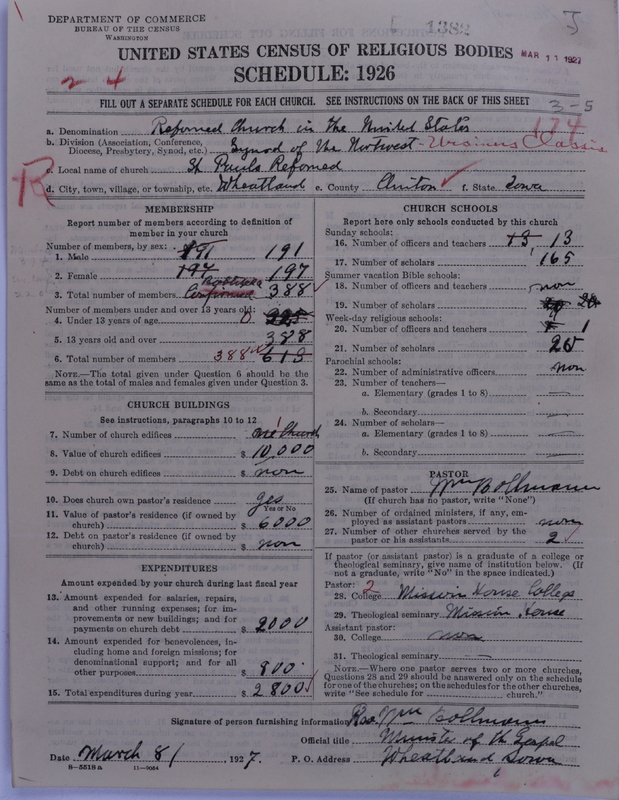 DEPARTMENT OF COMMERCE
BUREAU OF THE CENSUS
WASHINGTON
1382
J
UNITED STATES CENSUS OF RELIGIOUS BODIES
MAR 11 1927
SCHEDULE: 1926
2 4
FILL OUT A SEPARATE SCHEDULE FOR EACH CHURCH. SEE INSTRUCTIONS ON THE BACK OF THIS SHEET
3-5
174
a. Denomination Reformed Church in the United States
b. Division (Association, Conference, Diocese, Presbytery, Synod, etc.) Synod of the Northwest - Ursinus Classis
R
c. Local name of church St Pauls Reformed
d. City, town, village, or township, etc. Wheatland e. County Clinton f. State Iowa
MEMBERSHIP
Report number of members according to definition of member in your church
Number of members, by sex:
1. Male 191 191
2. Female 194 197
Baptized
3. Total number of members Confirmed 388
Number of members under and over 13 years old:
4. Under 13 years of age 0 225
5. 13 years old and over 388
6. Total number of members 388 613
NOTE.—The total given under Question 6 should be the same as the total of males and females given under Question 3.
CHURCH BUILDINGS
See instructions, paragraphs 10 to 12
7. Number of church edifices one Church 1
8. Value of church edifices $ 10,000
9. Debt on church edifices $ non
10. Does church own pastor's residence yes
Yes or No
11. Value of pastor's residence (if owned by church) $ 6000
12. Debt on pastor's residence (if owned by church) $ non
EXPENDITURES
Amount expended by your church during last fiscal year
13. Amount expended for salaries, repairs, and other running expenses; for improvements or new buildings; and for payments on church debt $ 2000
14. Amount expended for benevolences, including home and foreign missions; for denominational support; and for all other purposes $ 800.
15. Total expenditures during year $ 2800
CHURCH SCHOOLS
Report here only schools conducted by this church
Sunday schools:
16. Number of officers and teachers 13, 13
17. Number of scholars 165
Summer vacation Bible schools:
18. Number of officers and teachers non
19. Number of scholars
Week-day religious schools:
20. Number of officers and teachers 1
21. Number of scholars 25
Parochial schools:
22. Number of administrative officers non
23. Number of teachers—
a. Elementary (grades 1 to 8)
b. Secondary
24. Number of scholars—
a. Elementary (grades 1 to 8)
b. Secondary
PASTOR
25. Name of pastor Wm Bollmann
(If church has no pastor, write "None")
26. Number of ordained ministers, if any, employed as assistant pastors non
27. Number of other churches served by the pastor or his assistants 2
If pastor (or assistant pastor) is a graduate of a college or theological seminary, give name of institution below. (If not a graduate, write "No" in the space indicated.)
Pastor: 2
28. College Mission House College
29. Theological seminary Mission House
Assistant pastor:
30. College non
31. Theological seminary
NOTE.—Where one pastor serves two or more churches, Questions 28 and 29 should be answered only on the schedule for one of the churches; on the schedules for the other churches, write "See schedule for church."
Signature of person furnishing information Rev. Wm Bollmann
Official title Minister of the Gospel
Date March 8/, 1927. P. O. Address Wheatland Iowa
8—5518 a 11—9064